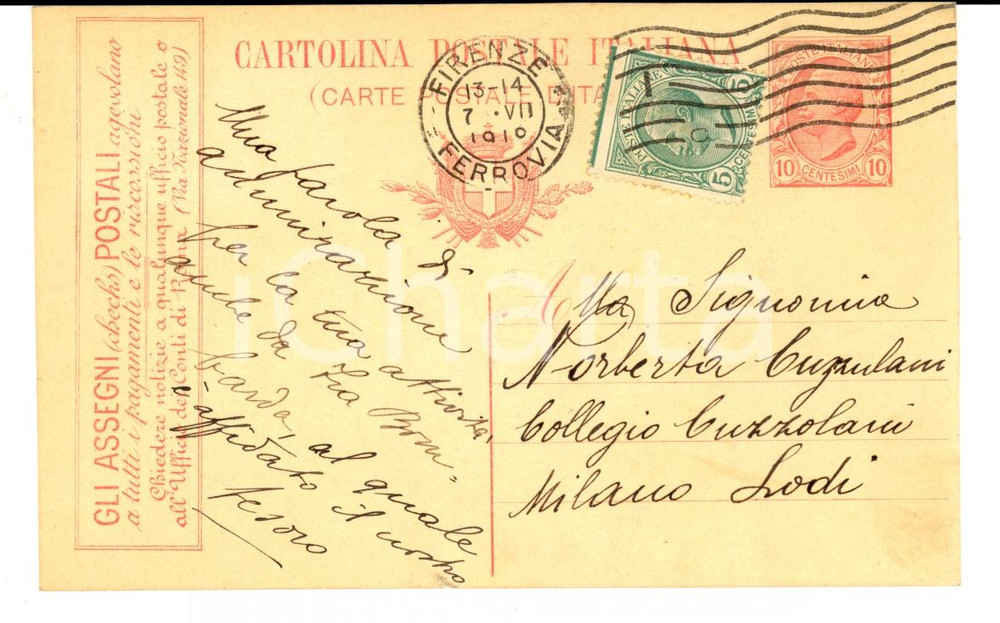 CARTOLINA POSTALE ITALIANA
(CARTE POSTALE D'ITALIE)
GLI ASSEGNI (checks) POSTALI agevolano
a tutti i pagamenti e le riscossioni
Chiedere notizie a qualunque ufficio postale o
all'Ufficio dei Conti di Roma (Via Nazionale 149)
FIRENZE
13-14
7 · VII
1919
FERROVIA
POSTE ITALIANE
5 CENTESIMI 5
10 CENTESIMI 10
Una parola di
ammirazione
per la tua attività,
anche da zia Bom-
barda, al quale
affidato il nostro
tesoro
Alla Signorina
Norberta
Collegio Cuzzolani
Milano Lodi
iCharta